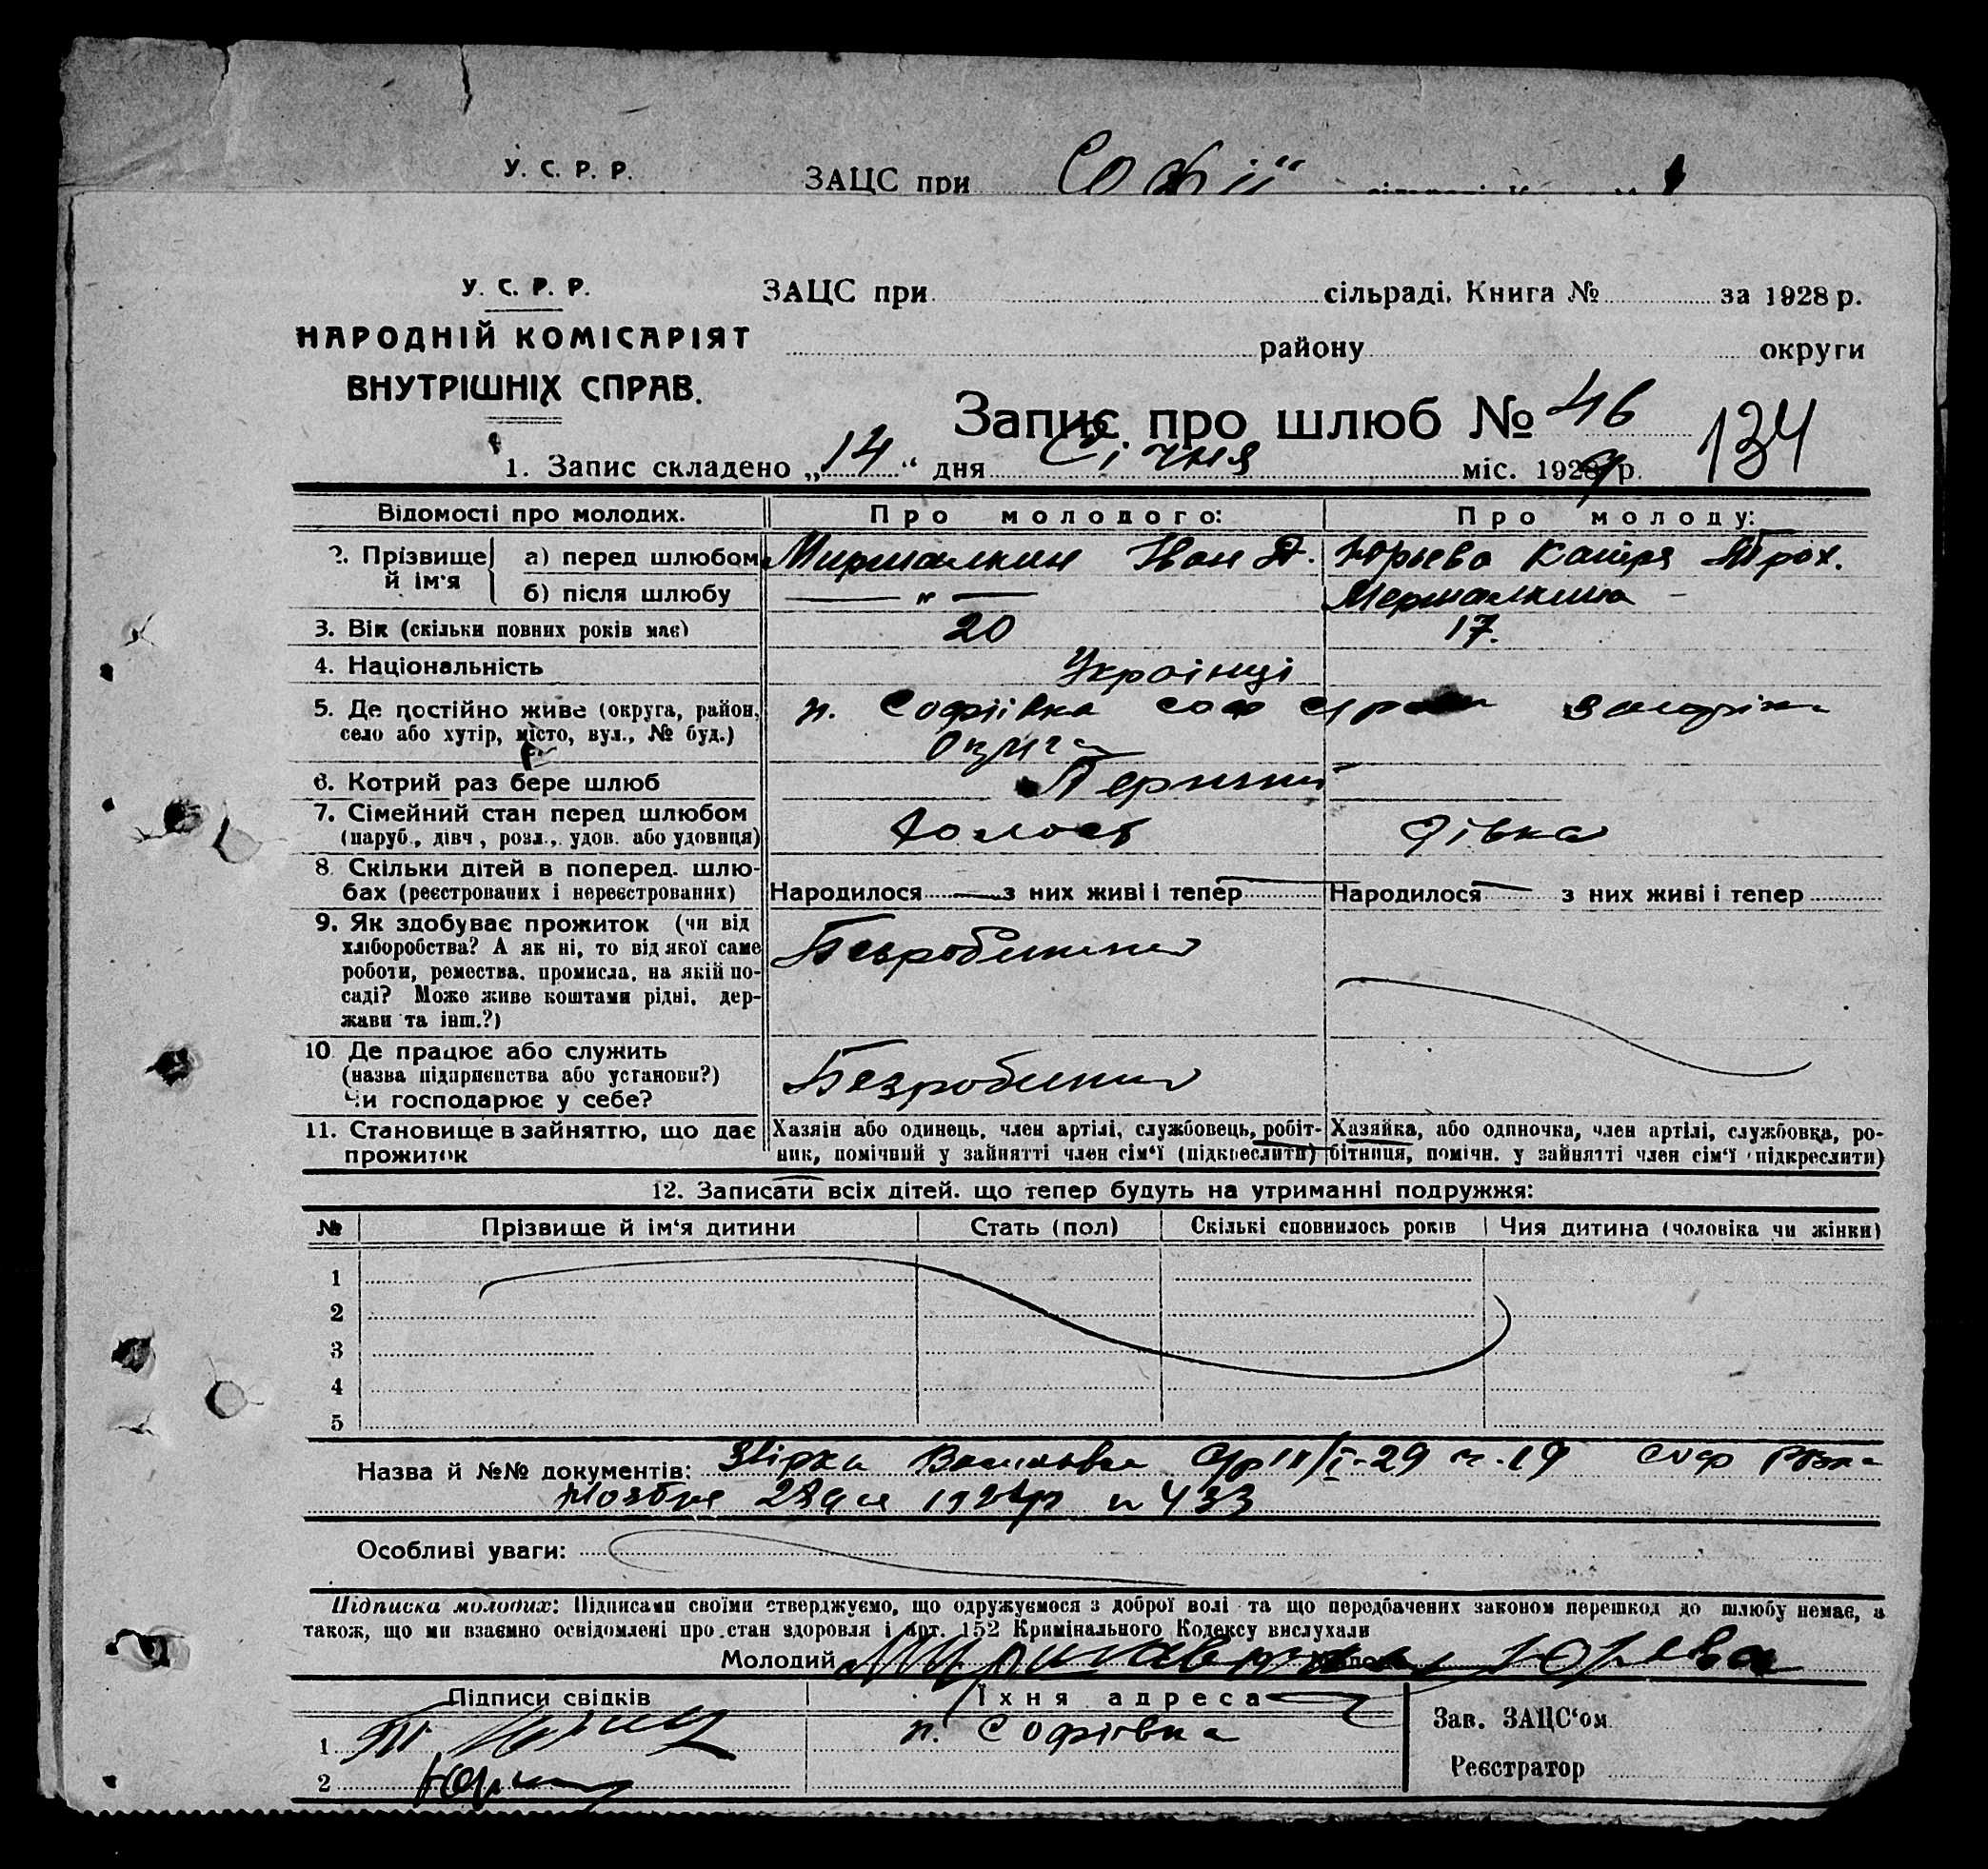 У. С. Р. Р. ЗАЦС при Софіі
У. С. Р. Р. ЗАЦС при сільраді. Книга № за 1928 р.
НАРОДНІЙ КОМІСАРІЯТ району округи
ВНУТРІШНІХ СПРАВ.
Запис про шлюб № 46 134
1. Запис складено „14“ дня Січня міс. 1929 р.
Відомості про молодих. Про молодого: Про молоду:
2. Прізвище й ім'я а) перед шлюбом Миршалкин Иван Юрьева Катря Трох.
б) після шлюбу — „ — Мершалкина
3. Вік (скільки повних років має) 20 17.
4. Національність Українці
5. Де постійно живе (округа, район, п. Софіівка соф
село або хутір, місто, вул., № буд.) Округа
6. Котрий раз бере шлюб Перший
7. Сімейний стан перед шлюбом
(паруб., дівч., розл., удов. або удовиця) Холост Дівка
8. Скільки дітей в поперед. шлю-
бах (реєстрованих і нереєстрованих) Народилося — з них живі і тепер — Народилося — з них живі і тепер
9. Як здобуває прожиток (чи від
хліборобства? А як ні, то від якої саме Безробітний
роботи, ремества, промисла, на якій по-
саді? Може живе коштами рідні, дер-
жави та інш.?)
10. Де працює або служить
(назва підприємства або установи?) Безробітний
Чи господарює у себе?
11. Становище в зайняттю, що дає прожиток
Хазяїн або одинець, член артілі, службовець, робіт-
ник, помічний у зайнятті член сім'ї (підкреслити)
Хазяйка, або одиночка, член артілі, службовка, ро-
бітниця, помічн. у зайнятті член сім'ї (підкреслити)
12. Записати всіх дітей, що тепер будуть на утриманні подружжя:
№ Прізвище й ім'я дитини Стать (пол) Скількі сповнилось років Чия дитина (чоловіка чи жінки)
1
2
3
4
5
Назва й №№ документів: I-29 19 соф
28 433
Особливі уваги:
Підписка молодих: Підписами своїми стверджуємо, що одружуємося з доброї волі та що передбачених законом перешкод до шлюбу немає, а
також, що ми взаємно освідомлені про стан здоровля і Арт. 152 Кримінального Кодексу вислухали
Молодий Юрева
Підписи свідків Їхня адреса Зав. ЗАЦС'ом
1 п. Софіівка
2 Реєстратор